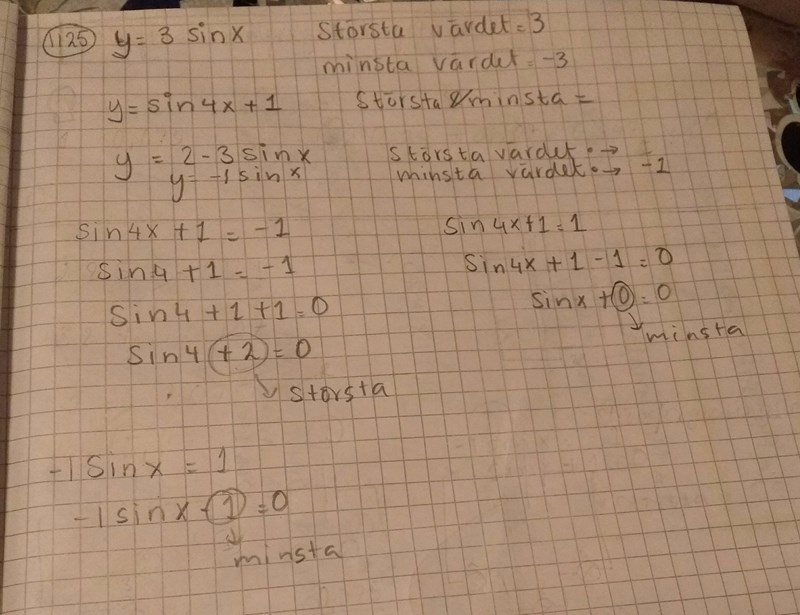 1125) y = 3 sinx Största värdet = 3
minsta värdet = -3
y = sin4x + 1 Största & minsta =
y = 2 - 3 sinx Största värdet • →
y = -1 sin x minsta värdet • → -1
sin4x + 1 = -1 Sin4x+1 = 1
sin4 + 1 = -1 Sin4x + 1 - 1 = 0
Sin4 + 1 + 1 = 0 sinx + 0 = 0
minsta
Sin4 + 2 = 0
Största
-1 Sinx = 1
-1 sinx - 1 = 0
minsta